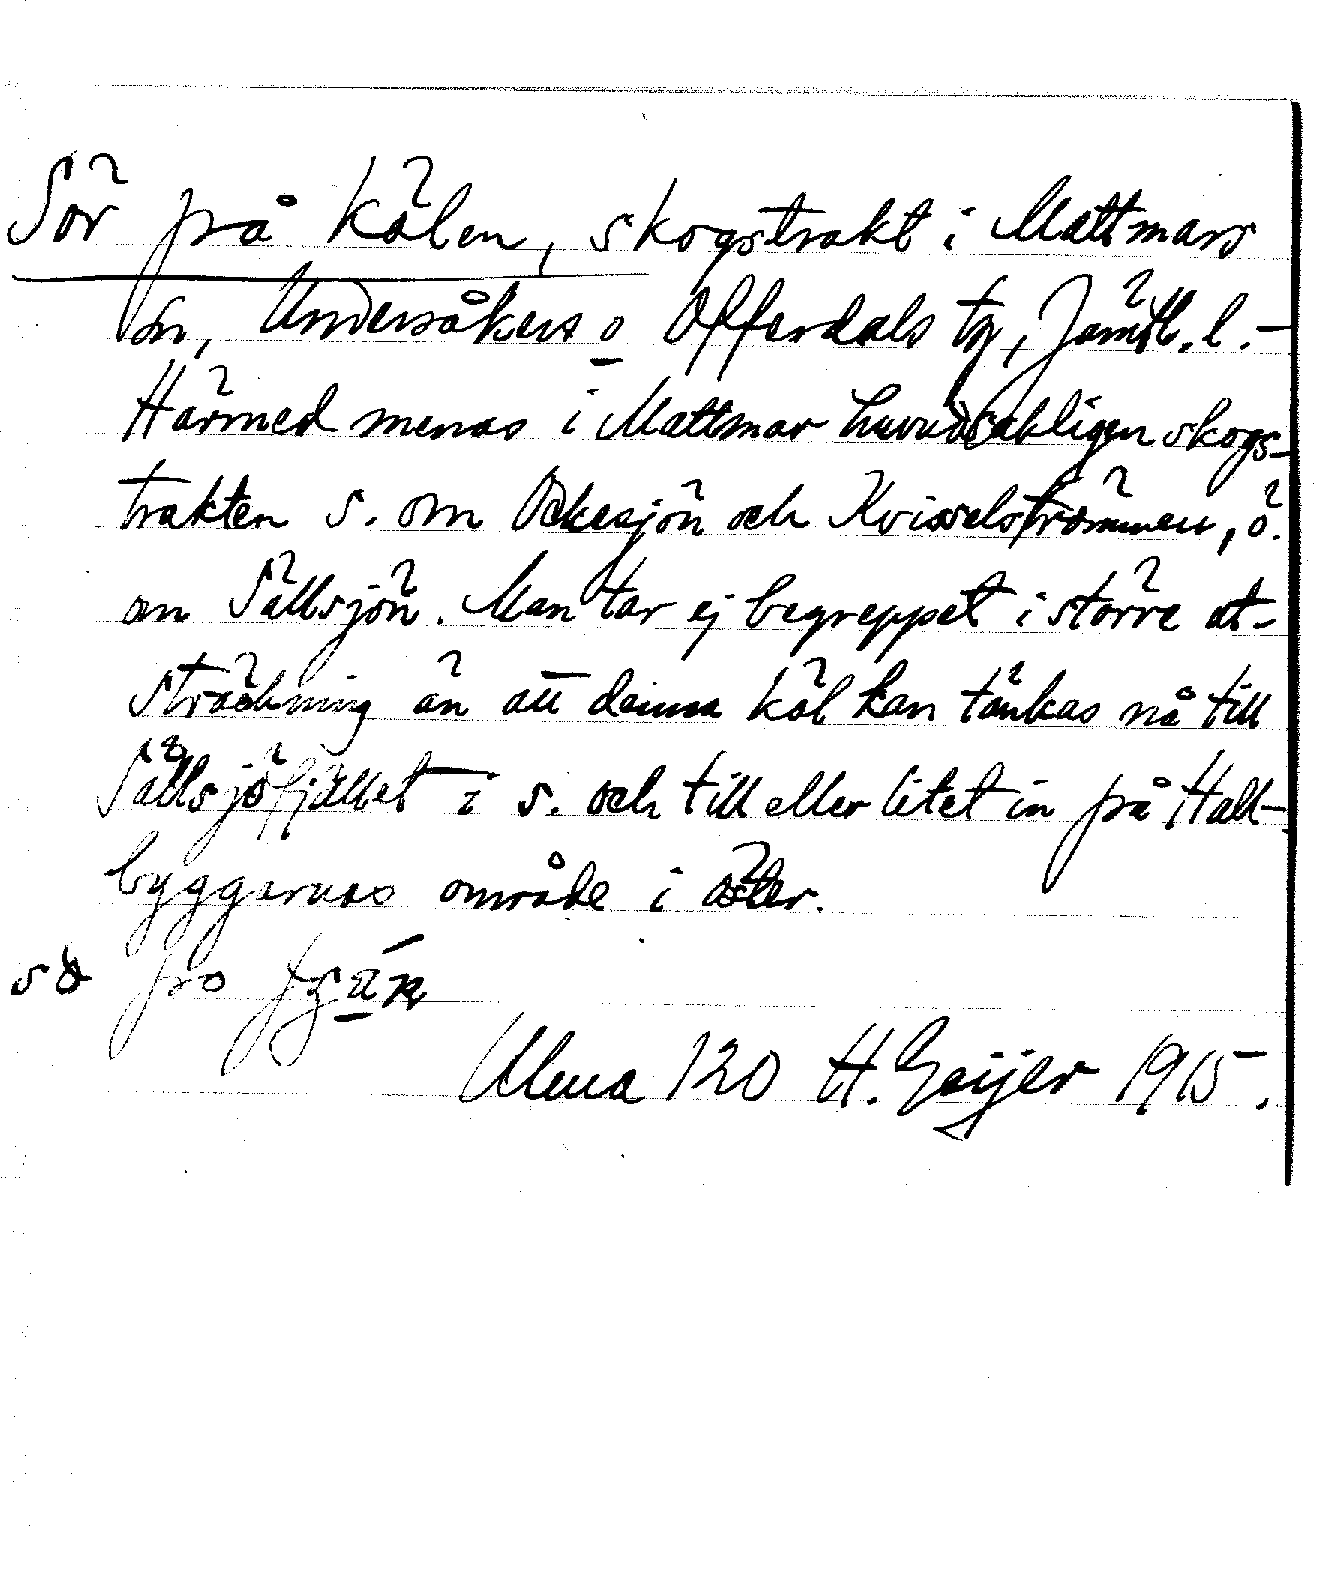 Sör på Kölen, skogstrakt i Mattmars
sn, Undersåkers o Offerdals tg, Jämtl. l. –
Härmed menas i Mattmar huvudsakligen skogs-
trakten s. om Ockesjön och Kvisselströmmen, ö.
om Sällsjön. Man tar ej begreppet i större ut-
sträckning än att denna köl kan tänkas nå till
Sällsjöfjället i s. och till eller litet in på Hall-
byggarnas område i öster.
pro
Ulma 120 H. Geijer 1915.